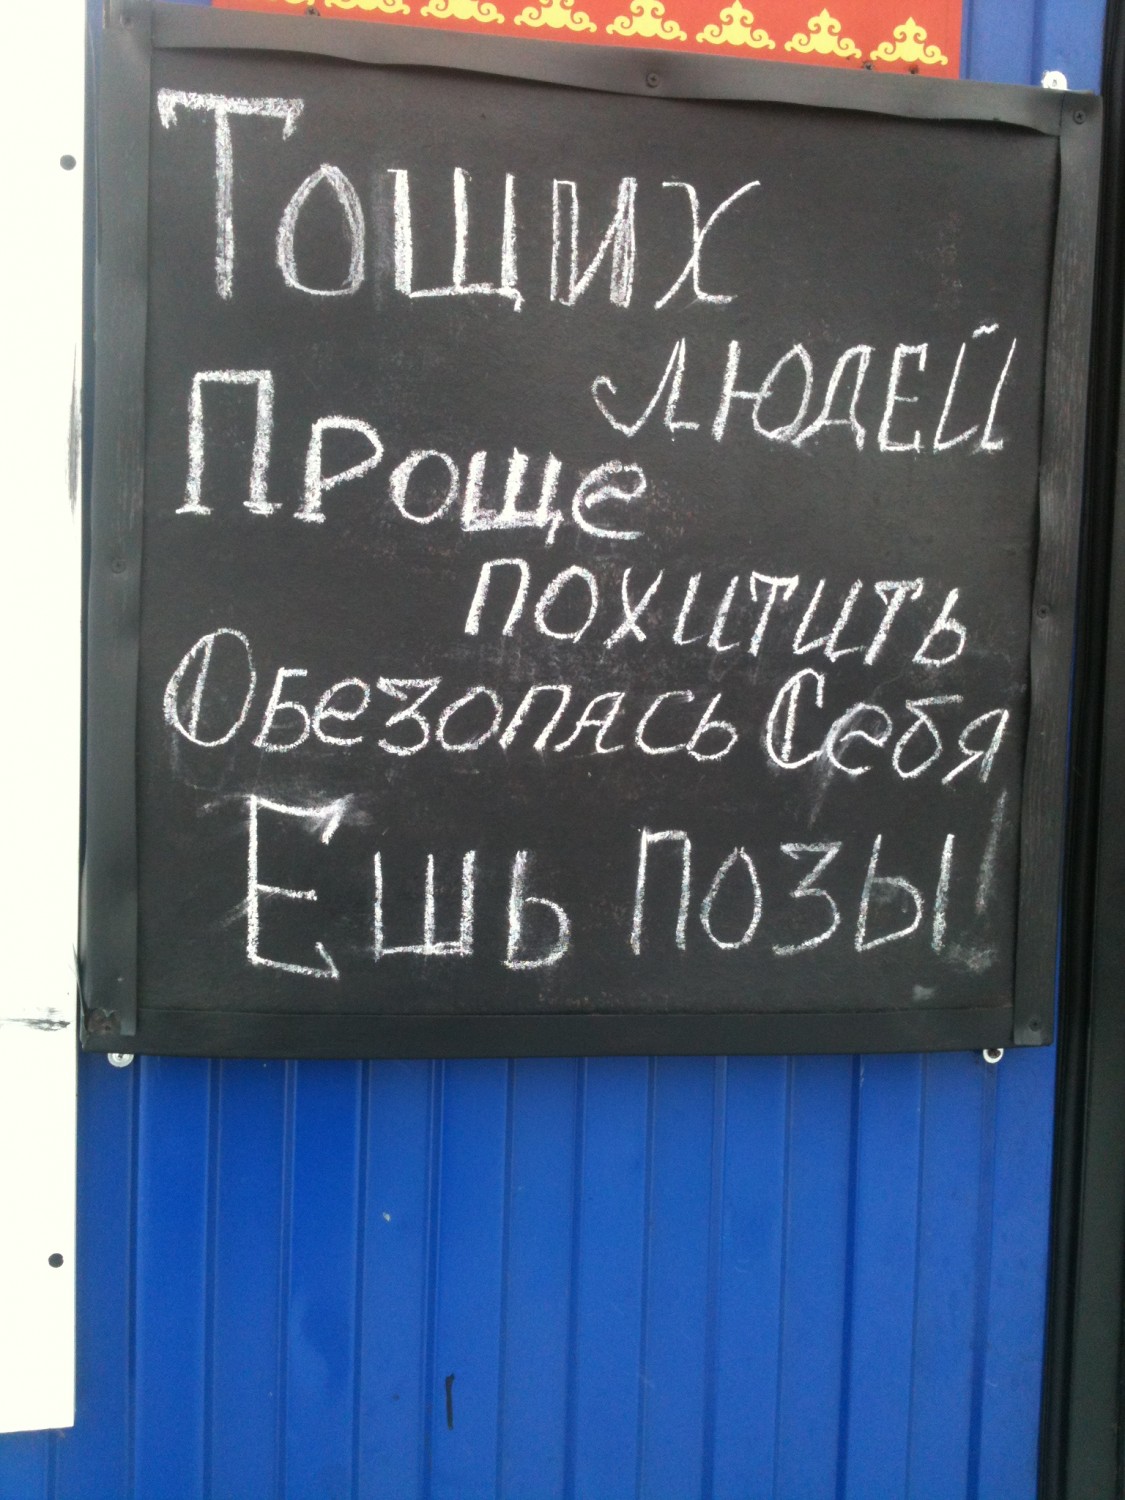 Тощих
людей
Проще
похитить
Обезопась Себя
Ешь позы!